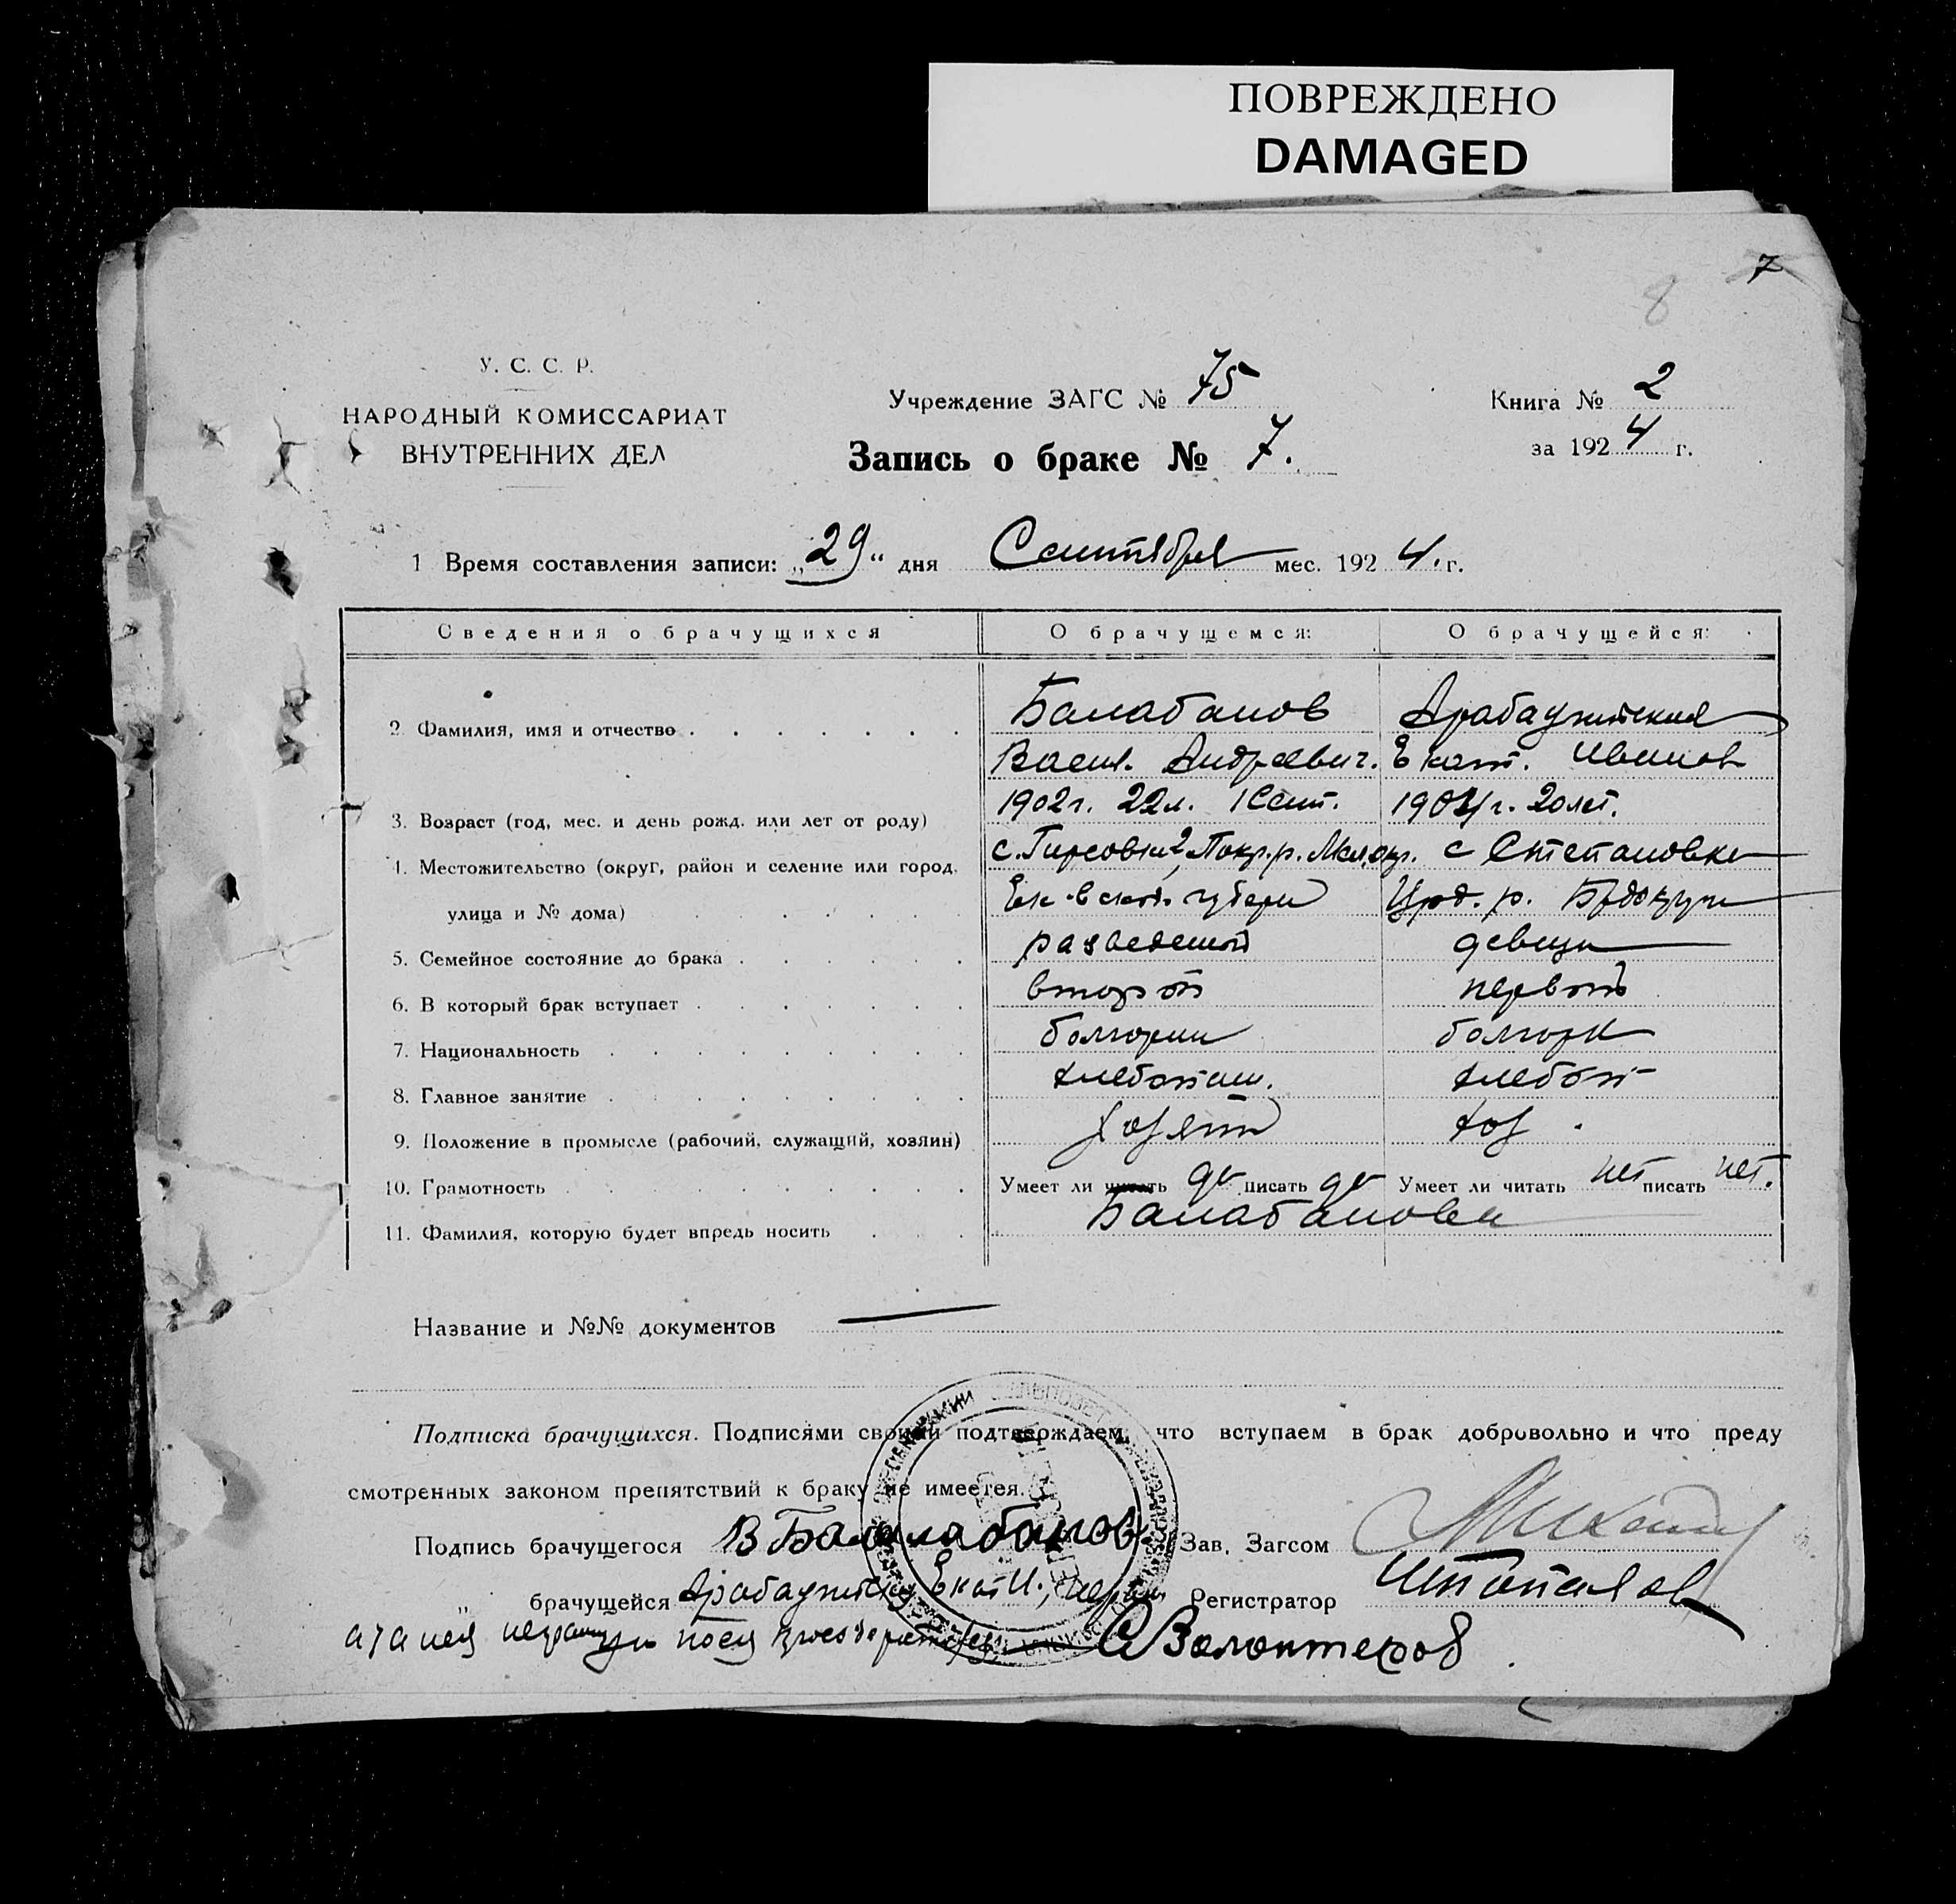 ПОВРЕЖДЕНО
DAMAGED
7
8
У. С. С. Р.
НАРОДНЫЙ КОМИССАРИАТ
ВНУТРЕННИХ ДЕЛ
Учреждение ЗАГС № 75
Запись о браке № 7.
Книга № 2
за 1924 г.
1 Время составления записи: „29“ дня Сентября мес. 1924. г.
Сведения о брачущихся О брачущемся: О брачущейся:
2. Фамилия, имя и отчество Балабанов
Васил. Андреевич. Екат. Иванов
3. Возраст (год, мес. и день рожд. или лет от роду) 1902 г. 22 л. 1 Сент. 1904 г. 20 лет.
4. Местожительство (округ, район и селение или город, с. Гирсовки 2, Покр. р. Мел. окр. с Степановки
улица и № дома) Ек-вской губерн р.
5. Семейное состояние до брака разведеной девица
6. В который брак вступает второй первый
7. Национальность болгарин болгарк
8. Главное занятие хлебопаш. хлебоп
9. Положение в промысле (рабочий, служащий, хозяин) хозяин хоз.
10. Грамотность Умеет ли читать да писать да Умеет ли читать нет писать нет.
11. Фамилия, которую будет впредь носить Балабановы
Название и №№ документов
Подписка брачущихся. Подписями своими подтверждаем, что вступаем в брак добровольно и что преду
смотренных законом препятствий к браку не имеется.
Подпись брачущегося В Балабанов Зав. Загсом
„ брачущейся Екат И., Регистратор